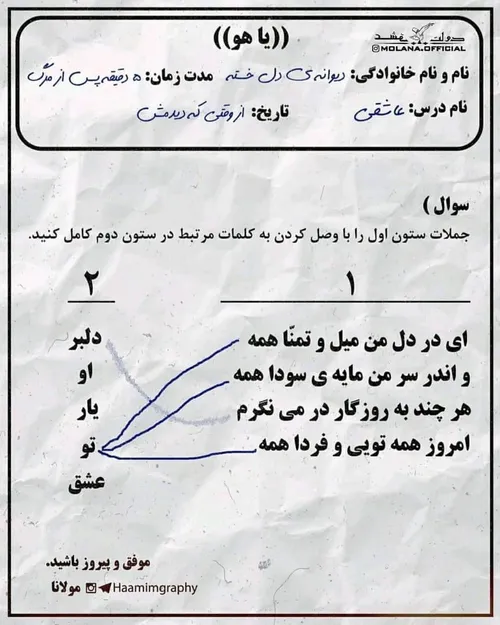 ((یا هو))
دولت عشق
@MOLANA.OFFICIAL
نام و نام خانوادگی: دیوانه‌ی دل خسته مدت زمان: ۵ دقیقه پس از مرگ
نام درس: عاشقی تاریخ: از وقتی که دیدمش
سوال )
جملات ستون اول را با وصل کردن به کلمات مرتبط در ستون دوم کامل کنید.
۱ ۲
ای در دل من میل و تمنّا همه دلبر
و اندر سر من مایه ی سودا همه او
هر چند به روزگار در می نگرم یار
امروز همه تویی و فردا همه تو
عشق
موفق و پیروز باشید.
Haamimgraphy مولانا